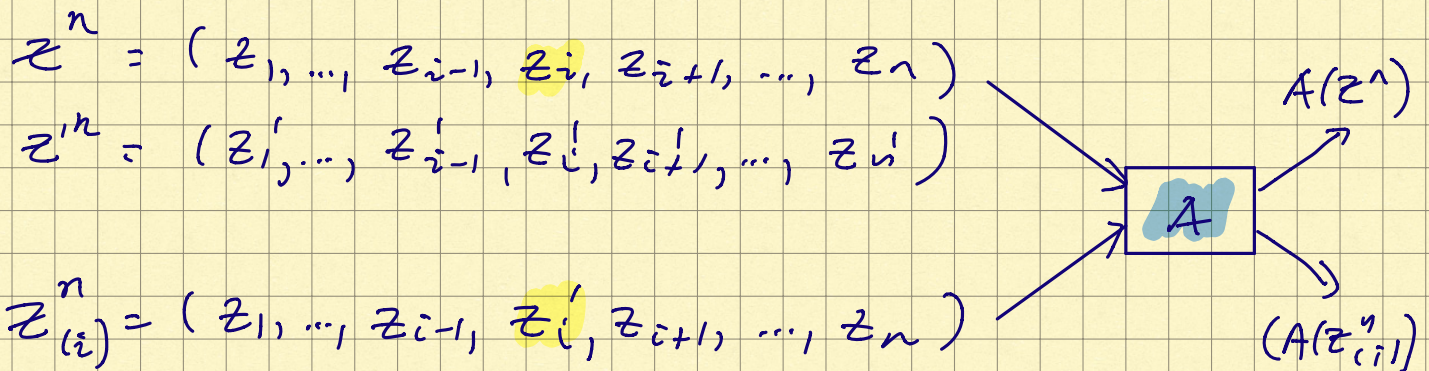 z^n = (z_1, ..., z_{i-1}, z_i, z_{i+1}, ..., z_n)
z'^n = (z_1', ..., z_{i-1}', z_i', z_{i+1}', ..., z_n')
z_{(i)}^n = (z_1, ..., z_{i-1}, z_i', z_{i+1}, ..., z_n)
A
A(z^n)
(A(z_{(i)}^n)